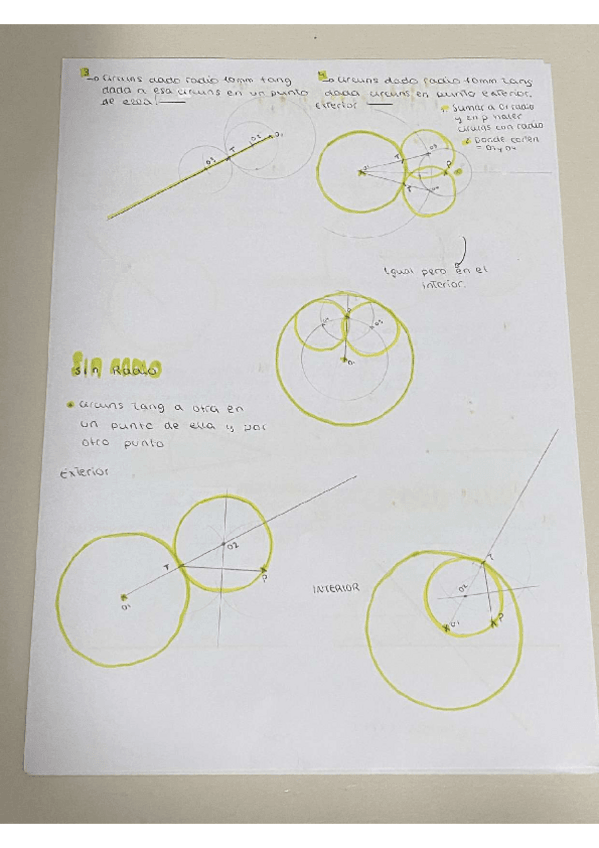 3 → circuns dado radio 10mm tang
dada a esa circuns en un punto
de ella!
4 → circuns dado radio 10mm tang
dada circuns en punto exterior.
exterior
1. Sumar a O1 radio
y en p hacer
circulos con radio
2. Donde corten
= O2 y O4
O3
T
O2
O1
O1
T
O3
P
T
Igual pero en el
interior.
P
O3
O1
SIN RADIO
Sin Radio
• circuns tang a otra en
un punto de ella y por
otro punto
Exterior
O2
T
P
O1
INTERIOR
T
O2
O1
P